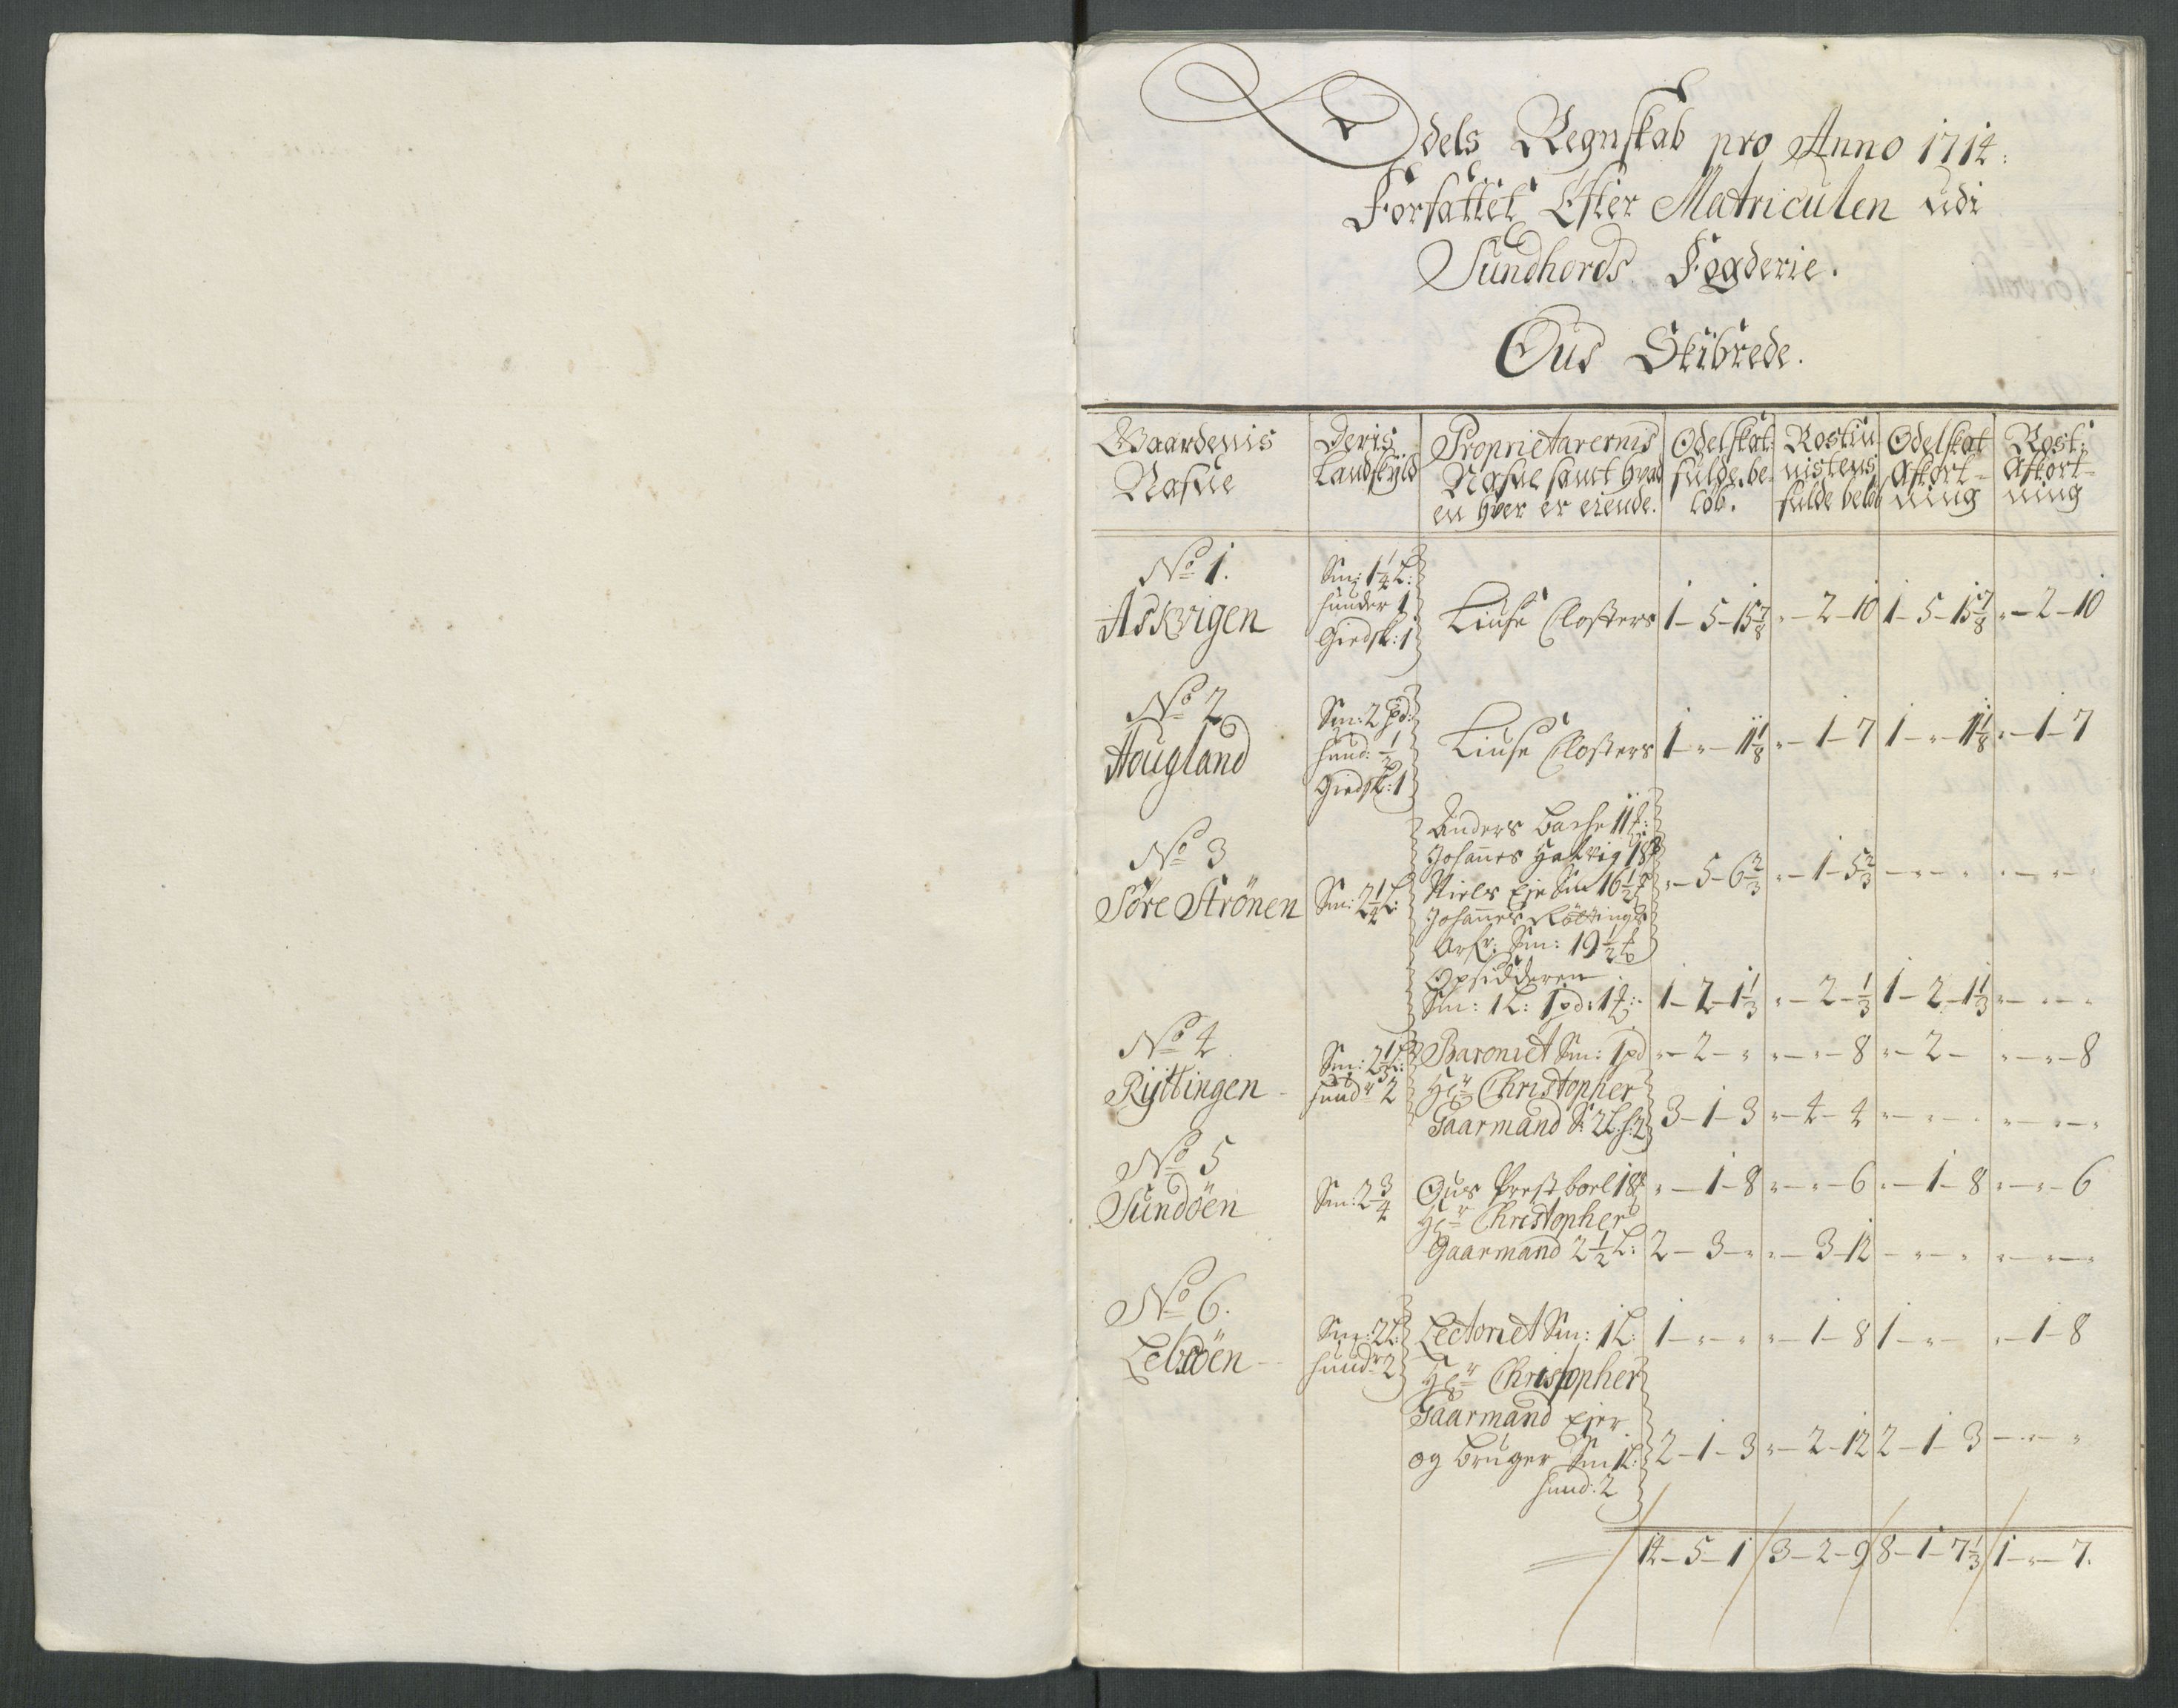 Odels Regnskab pro Anno 1714:
Forfattet Efter Matriculen udi
Sundhords Fogderie.
Ous Skibrede.
Gaardenis Nafue | Deris Landskyld | Proprietarernis Nafne samt hvad en hver er eiende. | Odelskat: fulde be- löb. | Rostie- nistens fulde belöb | Odelskat Afkort- ning | Rost: Afkort- ning
No 1.
Askvigen | Sm: 1 1/4 L: huuder 1 Giedsk: 1 | Liuse Closters | 1 - 5 - 15 7/8 | „ - 2 - 10 | 1 - 5 - 15 7/8 | „ - 2 - 10
No 2
Hougland | Sm: 2 pd: huud: 1/2 Giedsk: 1 | Liuse Closters | 1 - „ - 11 1/8 | „ - 1 - 7 | 1 - „ - 11 1/8 | „ - 1 - 7
No 3
Söre Strönen | Sm: 2 1/4 L:
Anders Bache 11
Johannes 18
Niels Eje Sm 16 1/2 | „ - 5 - 6 2/3 | „ - 1 - 5 2/3 | - „ - „ | „ - „ - „
Johannes Röttings
Arf: Sm: 19 1/2
Opsidderen
Sm: 1 L: 1 pd: 1 | 1 - 2 - 1 1/3 | „ - 2 - 1/3 | 1 - 2 - 1 1/3 | „ - „ - „
No 4
Rÿttingen | Sm: 2 1/3 L: huudr 2
Baroniet Sm: 1 pd | „ - 2 - „ | „ - „ - 8 | „ - 2 - | „ - „ - 8
Hr Christopher
Gaarmand S: 2 L. h: 2 | 3 - 1 - 3 | „ - 4 - 4 | „ - „ - „ | „ - „ - „
No 5
Sundöen | Sm: 2 3/4
Ous Prestborl 18 | „ - 1 - 8 | „ - „ - 6 | „ - 1 - 8 | „ - „ - 6
Hr Christopher
Gaarmand 2 1/2 L: | 2 - 3 - „ | „ - 3 - 12 | - „ - „ | „ - „ - „
No 6.
Lebsöen | Sm: 2 L: huudr 2
Lectoriet Sm: 1 L: | 1 - „ - „ | „ - 1 - 8 | 1 - „ - | „ - 1 - 8
Hr Christopher
Gaarmand Ejer
og Bruger Sm 1 L: | 2 - 1 - 3 | „ - 2 - 12 | 2 - 1 - 3 | - „ - „
huud: 2
14 - 5 - 1 | 3 - 2 - 9 | 8 - 1 - 7 1/3 | 1 - „ - 7.